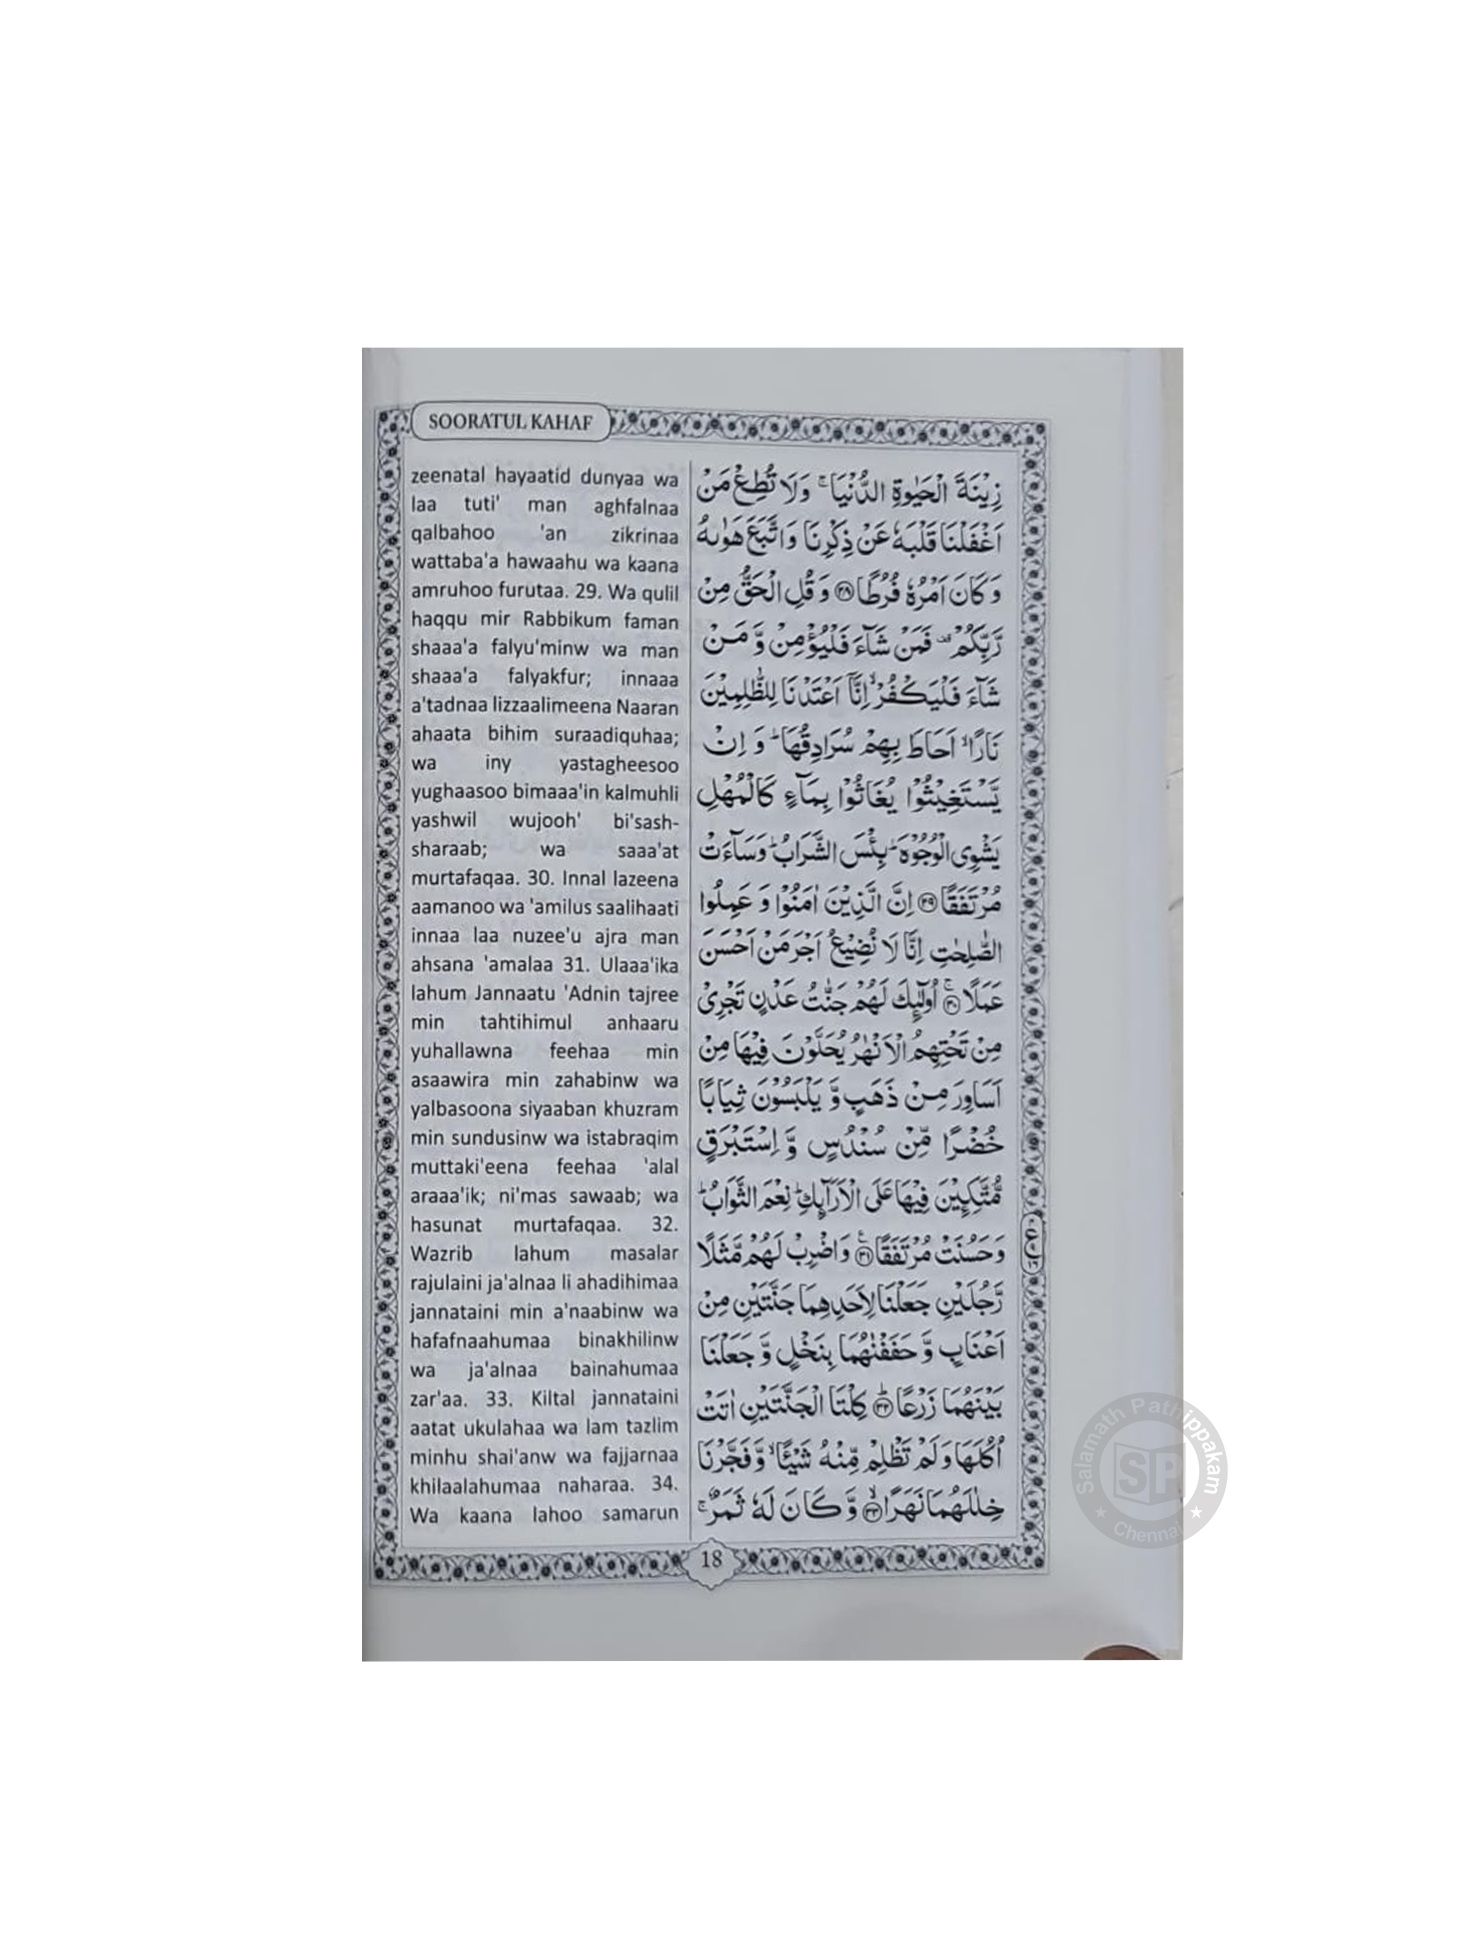 SOORATUL KAHAF
zeenatal hayaatid dunyaa wa
laa tuti' man aghfalnaa
qalbahoo 'an zikrinaa
wattaba'a hawaahu wa kaana
amruhoo furutaa. 29. Wa qulil
haqqu mir Rabbikum faman
shaaa'a falyu'minw wa man
shaaa'a falyakfur; innaaa
a'tadnaa lizzaalimeena Naaran
ahaata bihim suraadiquhaa;
wa iny yastagheesoo
yughaasoo bimaaa'in kalmuhli
yashwil wujooh' bi'sash-
sharaab; wa saaa'at
murtafaqaa. 30. Innal lazeena
aamanoo wa 'amilus saalihaati
innaa laa nuzee'u ajra man
ahsana 'amalaa 31. Ulaaa'ika
lahum Jannaatu 'Adnin tajree
min tahtihimul anhaaru
yuhallawna feehaa min
asaawira min zahabinw wa
yalbasoona siyaaban khuzram
min sundusinw wa istabraqim
muttaki'eena feehaa 'alal
araaa'ik; ni'mas sawaab; wa
hasunat murtafaqaa. 32.
Wazrib lahum masalar
rajulaini ja'alnaa li ahadihimaa
jannataini min a'naabinw wa
hafafnaahumaa binakhilinw
wa ja'alnaa bainahumaa
zar'aa. 33. Kiltal jannataini
aatat ukulahaa wa lam tazlim
minhu shai'anw wa fajjarnaa
khilaalahumaa naharaa. 34.
Wa kaana lahoo samarun
زِيْنَةَ الْحَيٰوةِ الدُّنْيَا ۚ وَلَا تُطِعْ مَنْ
اَغْفَلْنَا قَلْبَهٗ عَنْ ذِكْرِنَا وَاتَّبَعَ هَوٰىهُ
وَكَانَ اَمْرُهٗ فُرُطًا ﴿۲۸﴾ وَقُلِ الْحَقُّ مِنْ
رَّبِّكُمْ ۫ فَمَنْ شَآءَ فَلْيُؤْمِنْ وَّمَنْ
شَآءَ فَلْيَكْفُرْ ۙ اِنَّاۤ اَعْتَدْنَا لِلظّٰلِمِيْنَ
نَارًا ۙ اَحَاطَ بِهِمْ سُرَادِقُهَا ؕ وَاِنْ
يَّسْتَغِيْثُوْا يُغَاثُوْا بِمَآءٍ كَالْمُهْلِ
يَشْوِى الْوُجُوْهَ ؕ بِئْسَ الشَّرَابُ ؕ وَسَآءَتْ
مُرْتَفَقًا ﴿۲۹﴾ اِنَّ الَّذِيْنَ اٰمَنُوْا وَعَمِلُوا
الصّٰلِحٰتِ اِنَّا لَا نُضِيْعُ اَجْرَ مَنْ اَحْسَنَ
عَمَلًا ۚ﴿۳۰﴾ اُولٰٓئِكَ لَهُمْ جَنّٰتُ عَدْنٍ تَجْرِىْ
مِنْ تَحْتِهِمُ الْاَنْهٰرُ يُحَلَّوْنَ فِيْهَا مِنْ
اَسَاوِرَ مِنْ ذَهَبٍ وَّيَلْبَسُوْنَ ثِيَابًا
خُضْرًا مِّنْ سُنْدُسٍ وَّاِسْتَبْرَقٍ
مُّتَّكِـِٕيْنَ فِيْهَا عَلَى الْاَرَآئِكِ ؕ نِعْمَ الثَّوَابُ ؕ
وَحَسُنَتْ مُرْتَفَقًا ﴿۳۱﴾ۧ وَاضْرِبْ لَهُمْ مَّثَلًا
رَّجُلَيْنِ جَعَلْنَا لِاَحَدِهِمَا جَنَّتَيْنِ مِنْ
اَعْنَابٍ وَّحَفَفْنٰهُمَا بِنَخْلٍ وَّجَعَلْنَا
بَيْنَهُمَا زَرْعًا ؕ﴿۳۲﴾ كِلْتَا الْجَنَّتَيْنِ اٰتَتْ
اُكُلَهَا وَلَمْ تَظْلِمْ مِّنْهُ شَيْئًا ۙ وَّفَجَّرْنَا
خِلٰلَهُمَا نَهَرًا ۙ﴿۳۳﴾ وَّكَانَ لَهٗ ثَمَرٌ ۚ
18
Salamath Pathippakam
SP
Chennai